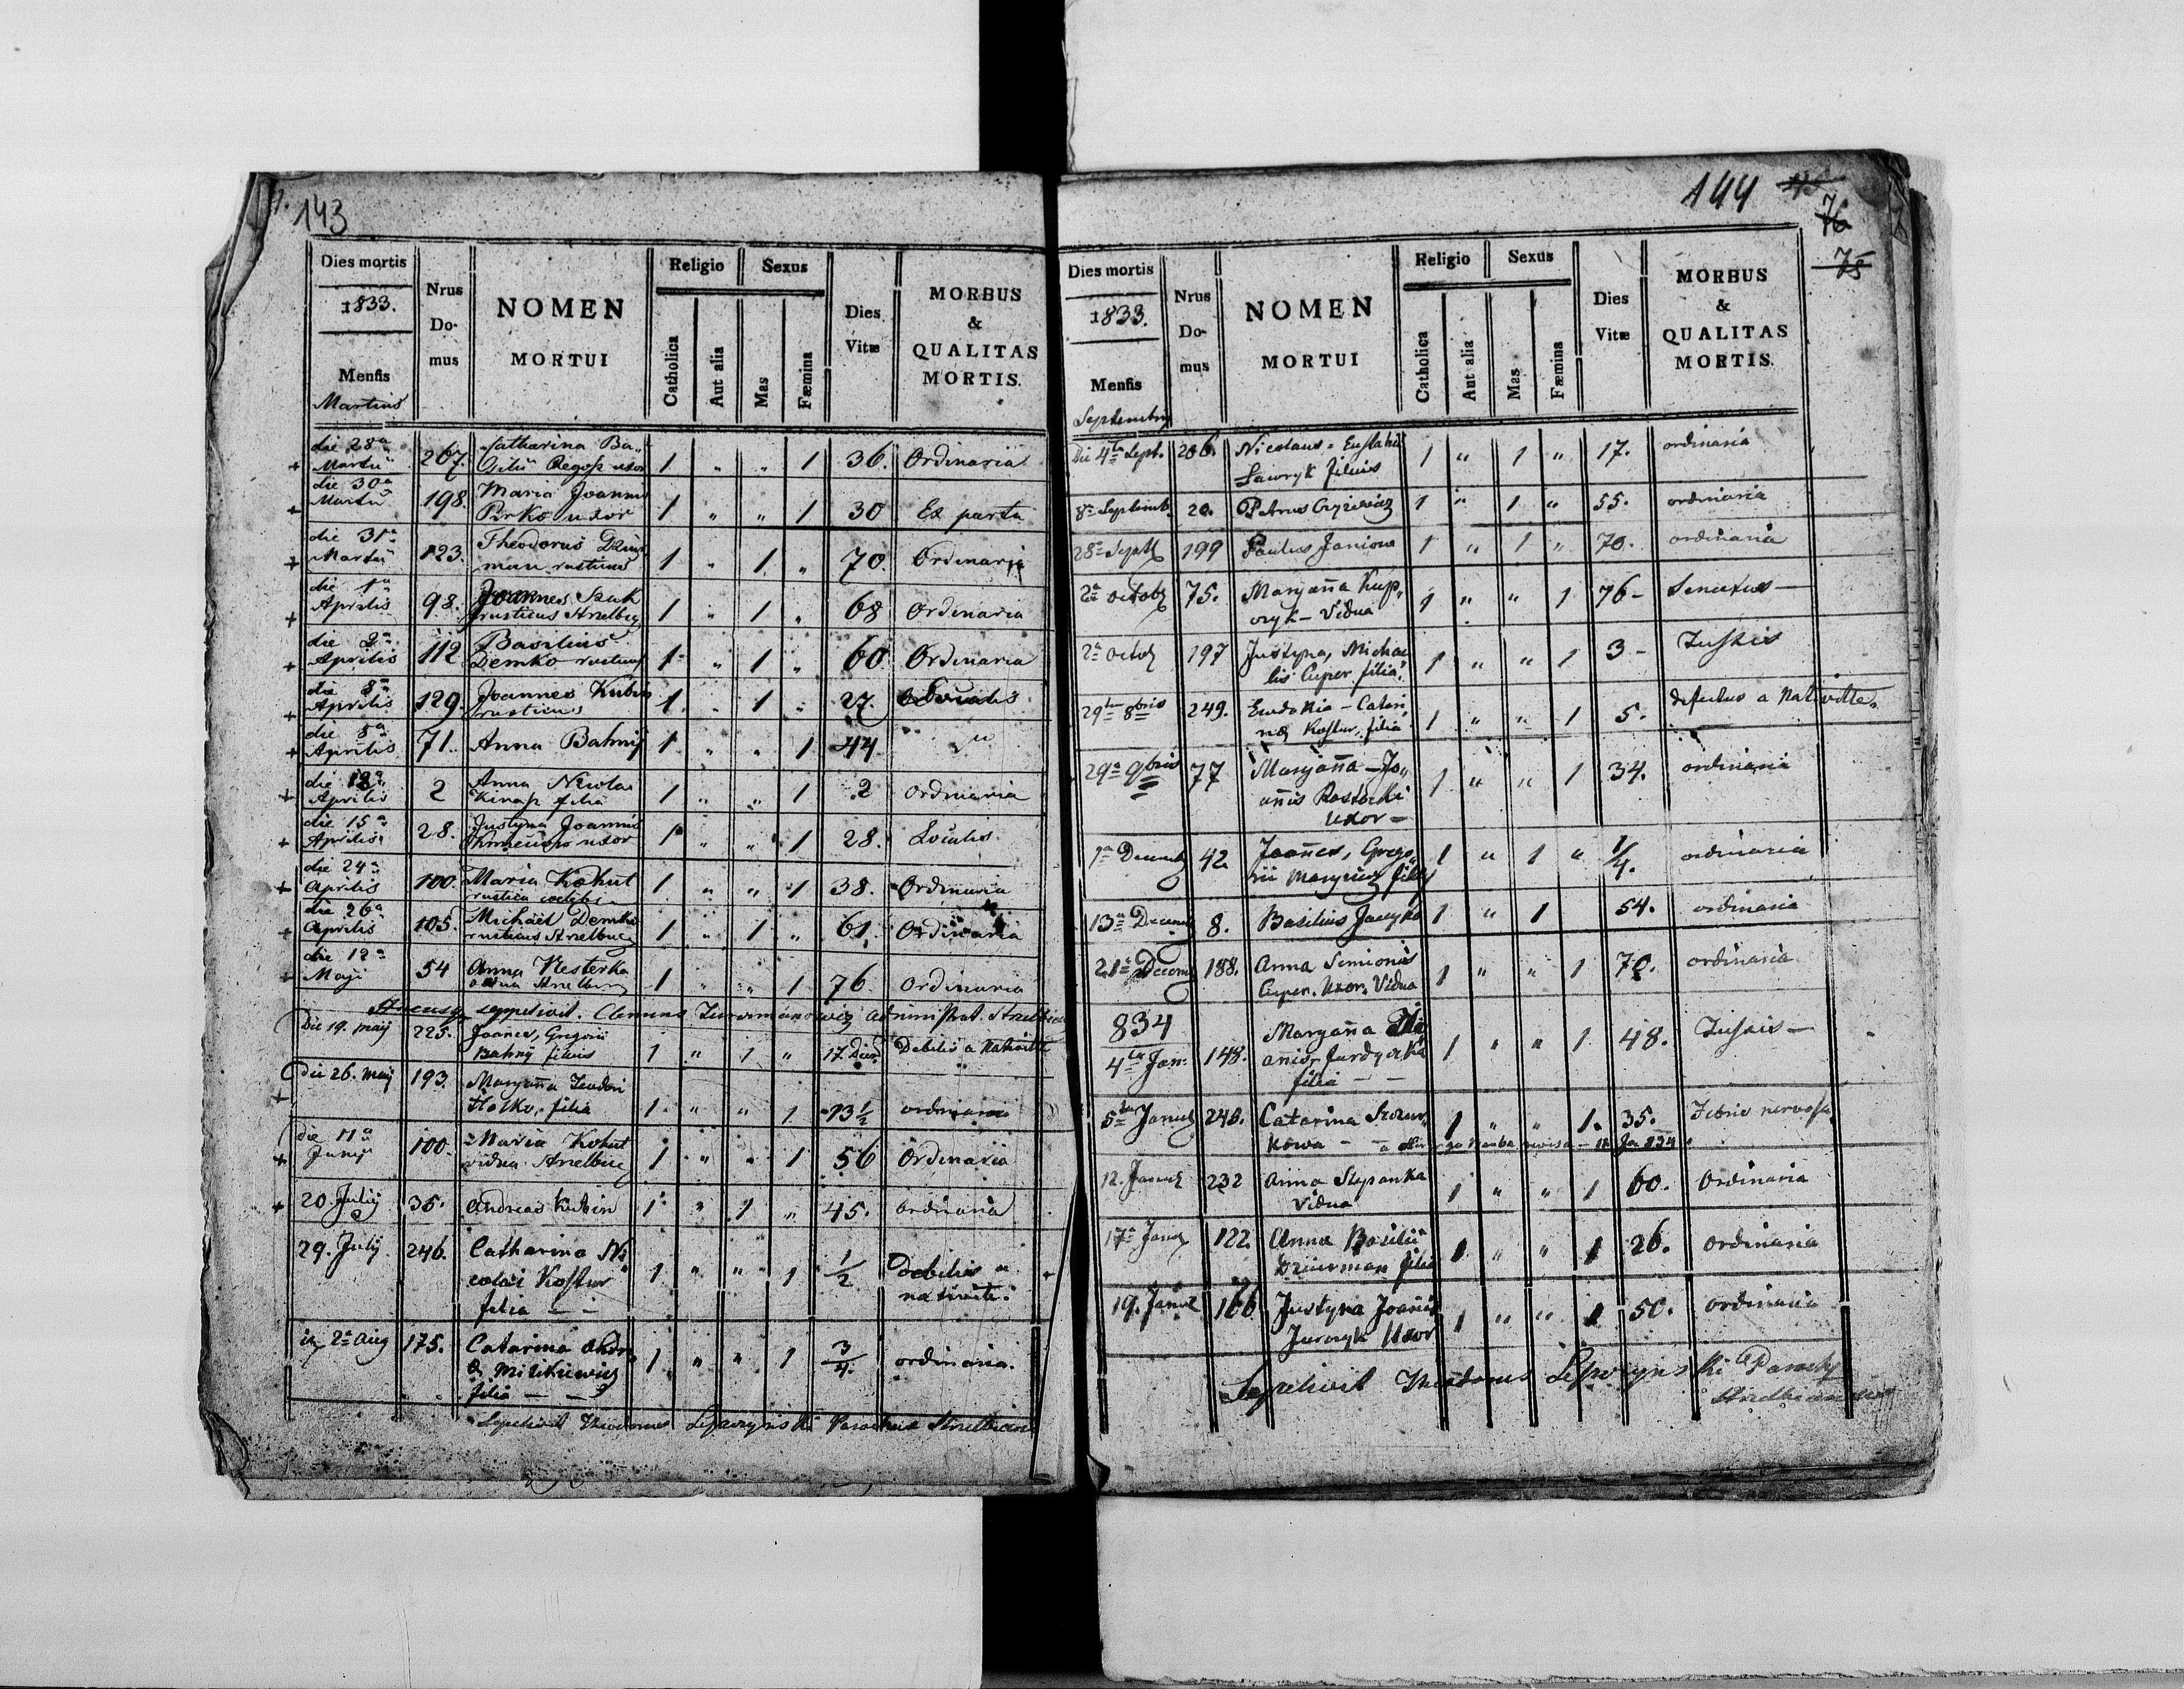 143
Dies mortis
1833.
Mensis
Martius
Nrus
Do-
mus
NOMEN
MORTUI
Religio
Catholica
Aut alia
Sexus
Mas
Fæmina
Dies
Vitæ
MORBUS
&
QUALITAS
MORTIS.
die 28a Martii 267. Catharina Ba„ 1 „ „ 1 36. Ordinaria
silii uxor
die 30a Martii 198. Maria Joannis 1 „ „ 1 30 Ex partu
Pirko uxor
die 31a Martii 123. Theodorus 1 „ 1 „ 70. Ordinaria
man rusticus
die 1a Aprilis 98. Joannes Szuk 1 „ 1 „ 68 Ordinaria
rusticus
die 2a Aprilis 112 Basilius 1 „ 1 „ 60 Ordinaria
Demko rusticus
die 8a Aprilis 129. Joannes Kubin 1 „ 1 „ 27.
rusticus
die 8a Aprilis 71. Anna Bahnij 1 „ „ 1 44
die Aprilis 2 Anna Nicolai 1 „ „ 1 2 ordinaria
filia
die 15a Aprilis 28. Justyna Joannis 1 „ „ 1 28. Localis
uxor
die 24a Aprilis 100. Maria Kohut 1 „ „ 1 38. Ordinaria
rustica
die 26a Aprilis 105. Michael Demko 1 „ 1 „ 61. Ordinaria
rusticus
die 12a Maji 54 Anna Nesterka 1 „ „ 1 76 Ordinaria
vidua
sepelivit. Clemens
Die 19. Maij 225. Joanes, Gregorii 1 „ 1 „ 17. Dier. Debilis a Nativitte
Bahnij filius
Die 26. Maij 193. Maryanna Teodori 1 „ „ 1 ordinaria
Holko, filia
die 11a Junij 100. Maria Kohut 1 „ „ 1 56 Ordinaria
vidua
20. Julij 35. Andreas Kubin 1 „ 1 „ 45. ordinaria
29. Julij 246. Catharina Ni„ 1 „ „ 1 1/2 Debilis a
colai Kostur nativite.
filia
2a Aug 175. Catarina 1 „ „ 1 3/4. ordinaria.
filia
Sepelivit Theodorus
144
76
75
Dies mortis
1833.
Mensis
Septembris
Nrus
Do-
mus
NOMEN
MORTUI
Religio
Catholica
Aut alia
Sexus
Mas
Fæmina
Dies
Vitæ
MORBUS
&
QUALITAS
MORTIS.
Die 4ta Sept. 206. Nicolaus 1 „ 1 „ 17. ordinaria
Ławryk filius
8a Septemb. 20. Petrus 1 „ 1 „ 55. ordinaria
28a Septb 199 Paulus Janiow 1 „ 1 „ 70. ordinaria
2a octob 75. Maryanna Kup„ 1 „ „ 1 76 - Senectus —
Vidua
2a octob 197 Justyna, Micha„ 1 „ „ 1 3 - Tussis
lis Cuper filia.
29ta 8bris 249. Eudokia - Catari„ 1 „ „ 1 5. defectus a Nativitte.
næ Kostur. filia
29a 9bris 77 Maryanna - Jo„ 1 „ „ 1 34. ordinaria
annis
Uxor -
1a Decemb 42 Joannes, Grego„ 1 „ 1 „ 1/4. ordinaria
rii
13a Decemb 8. Basilius Jacyko 1 „ 1 54. ordinaria
21a Decemb 188. Anna Simionis 1 „ „ 1 70. ordinaria
Cuper. Uxor. Vidua
834
4ta Jan: 148. Maryanna 1 „ „ 1 48. Tussis —
filia — —
5ta Januar 248. Catarina 1 „ „ 1. 35. Febris nervosa.
kowa
12. Januar 232 Anna Stepanka 1 „ „ 1 60. Ordinaria
Vidua
17a Januar 122 Anna Basilii 1 „ „ 1 26. ordinaria
Dziurman filia
19. Januar 166 Justyna Joannis 1 „ „ 1 50. ordinaria
Jurczyk Uxor
Sepelivit Theodorus